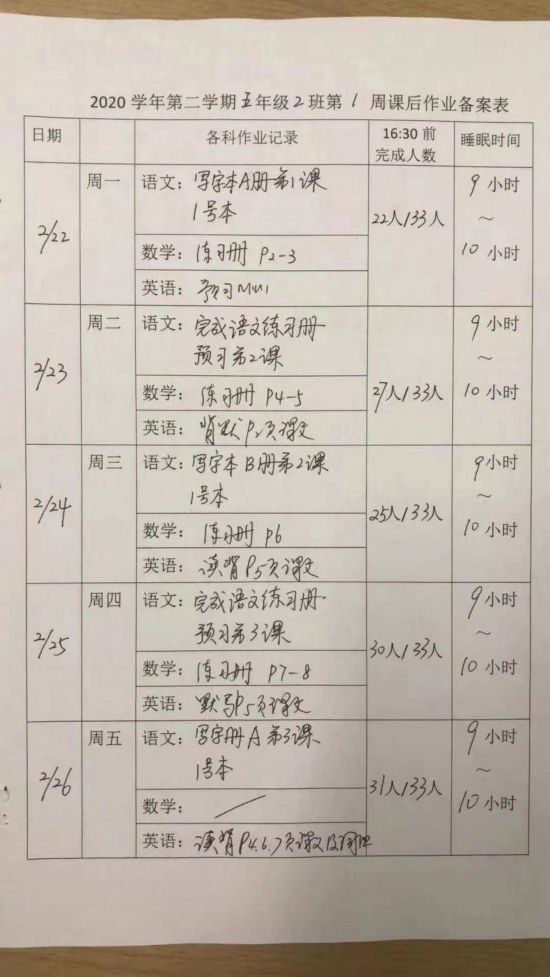 2020 学年第二学期五年级2班第1周课后作业备案表
日期
各科作业记录
16:30 前
完成人数
睡眠时间
2/22
周一
语文：写字本A册第1课
1号本
数学：练习册 P2-3
英语：预习M1U1
22人/33人
9 小时
～
10 小时
2/23
周二
语文：完成语文练习册
预习第2课
数学：练习册 P4-5
英语：背默P2页课文
27人/33人
9 小时
～
10 小时
2/24
周三
语文：写字本B册第2课
1号本
数学：练习册 P6
英语：读背P5页课文
25人/33人
9 小时
～
10 小时
2/25
周四
语文：完成语文练习册
预习第3课
数学：练习册 P7-8
英语：默写P5页课文
30人/33人
9 小时
～
10 小时
2/26
周五
语文：写字册A第3课
1号本
数学：
英语：读背P4.6.7页课文及
31人/33人
9 小时
～
10 小时